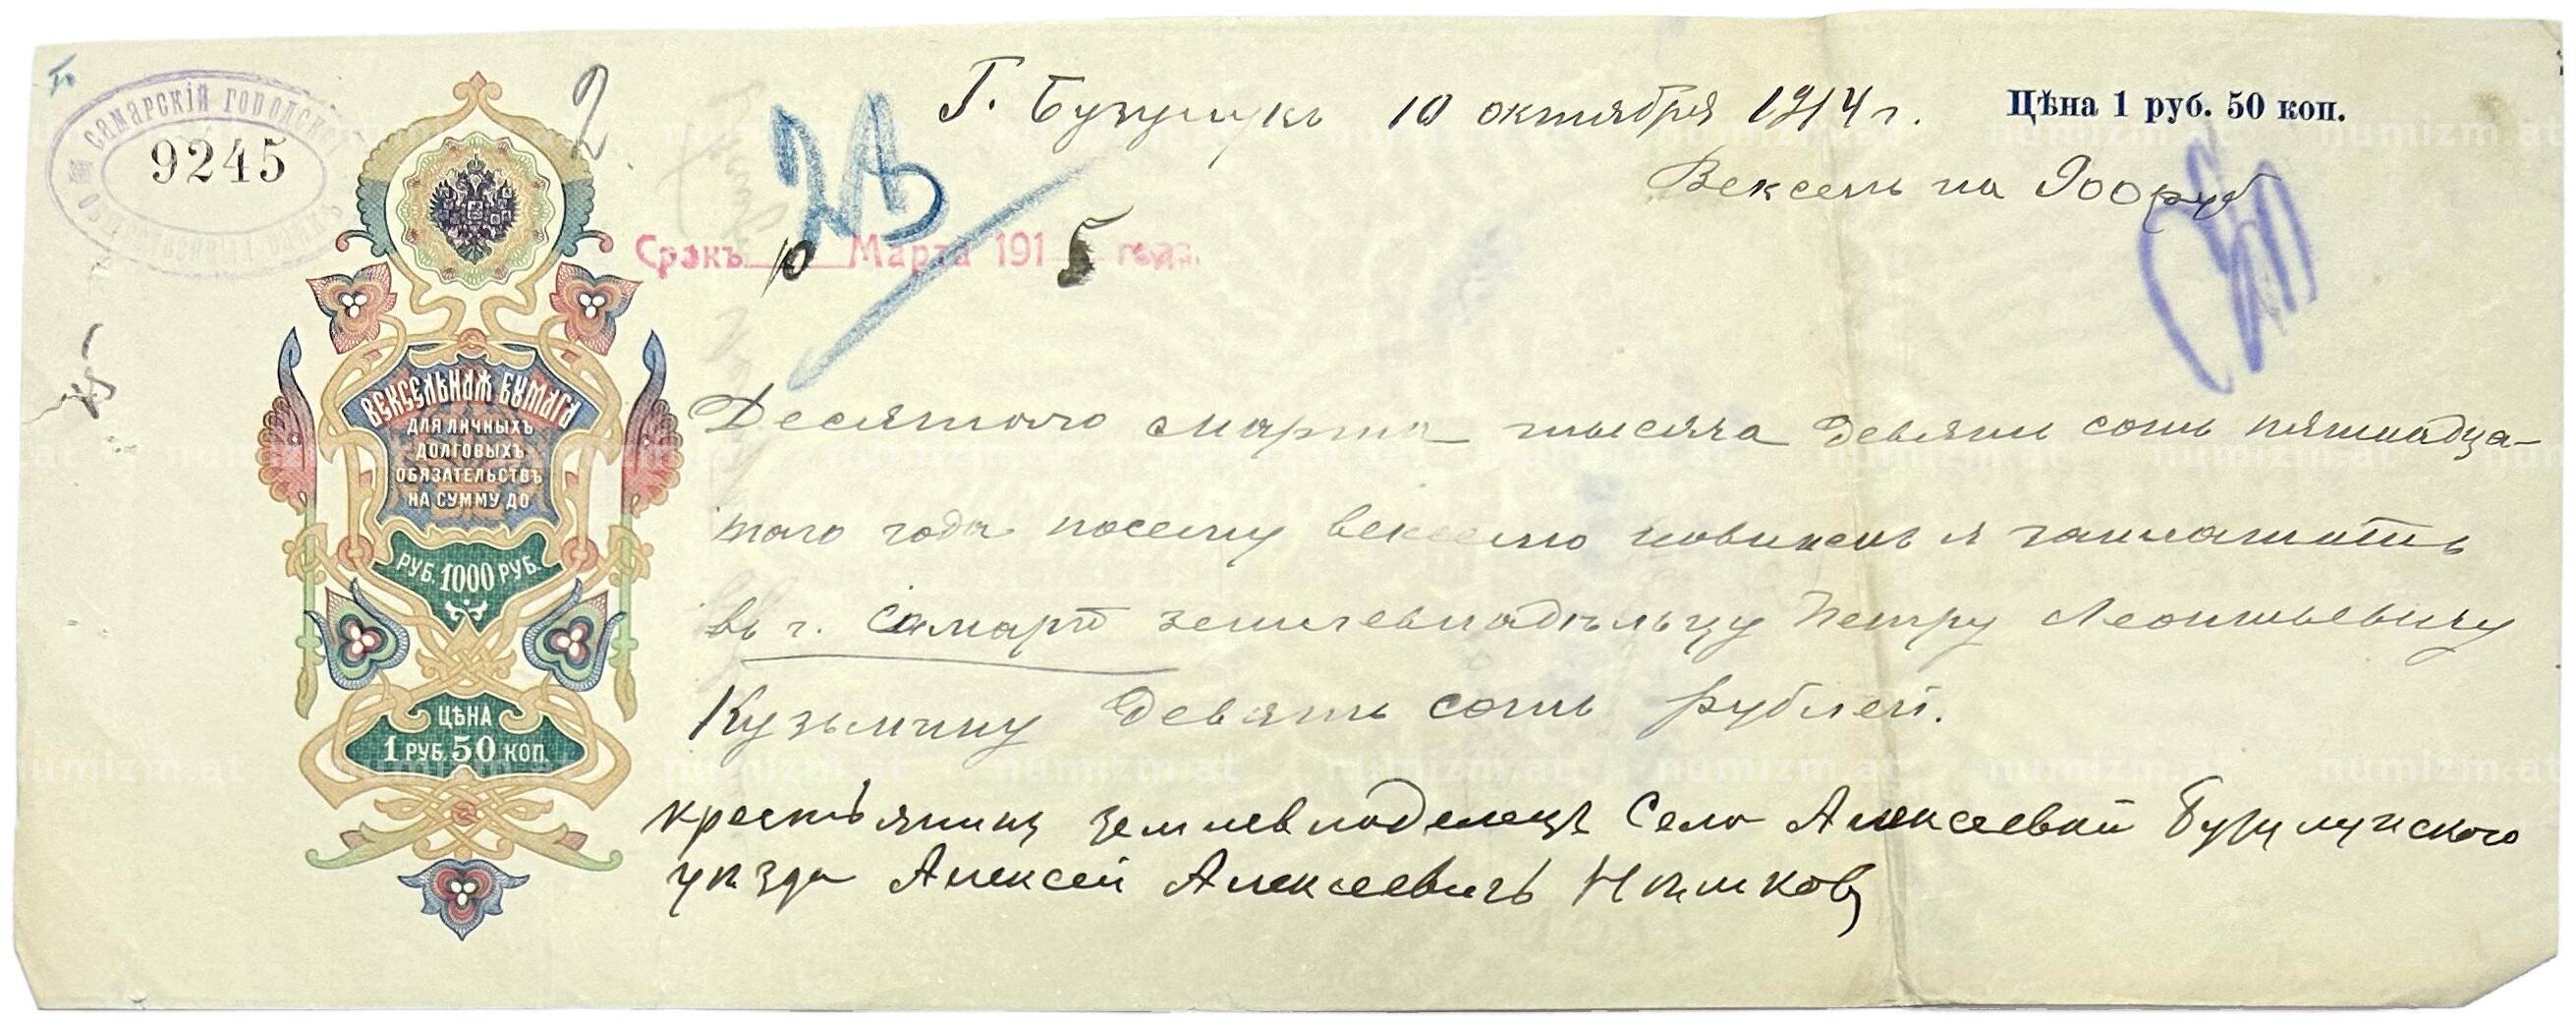 САМАРСКІЙ ГОРОДСКОЙ
9245
2
Г. Бузулукъ 10 октября 1914 г.
Цѣна 1 руб. 50 коп.
Вексель на 900 руб
Срокъ 10 Марта 1915 года.
ВЕКСЕЛЬНАЯ БУМАГА
ДЛЯ ЛИЧНЫХЪ
ДОЛГОВЫХЪ
ОБЯЗАТЕЛЬСТВЪ
НА СУММУ ДО
РУБ. 1000 РУБ.
ЦѢНА
1 РУБ. 50 КОП.
Десятаго марта тысяча девять сотъ пятнадца-
таго года посему векселю повиненъ я заплатить
въ г. Самарѣ землевладѣльцу Петру Леонтьевичу
Кузьмину девять сотъ рублей.
крестьянинъ землевладелецъ Село Алексеевки Бузулукского
уѣзда Алексей Алексеевичъ
numizm.at